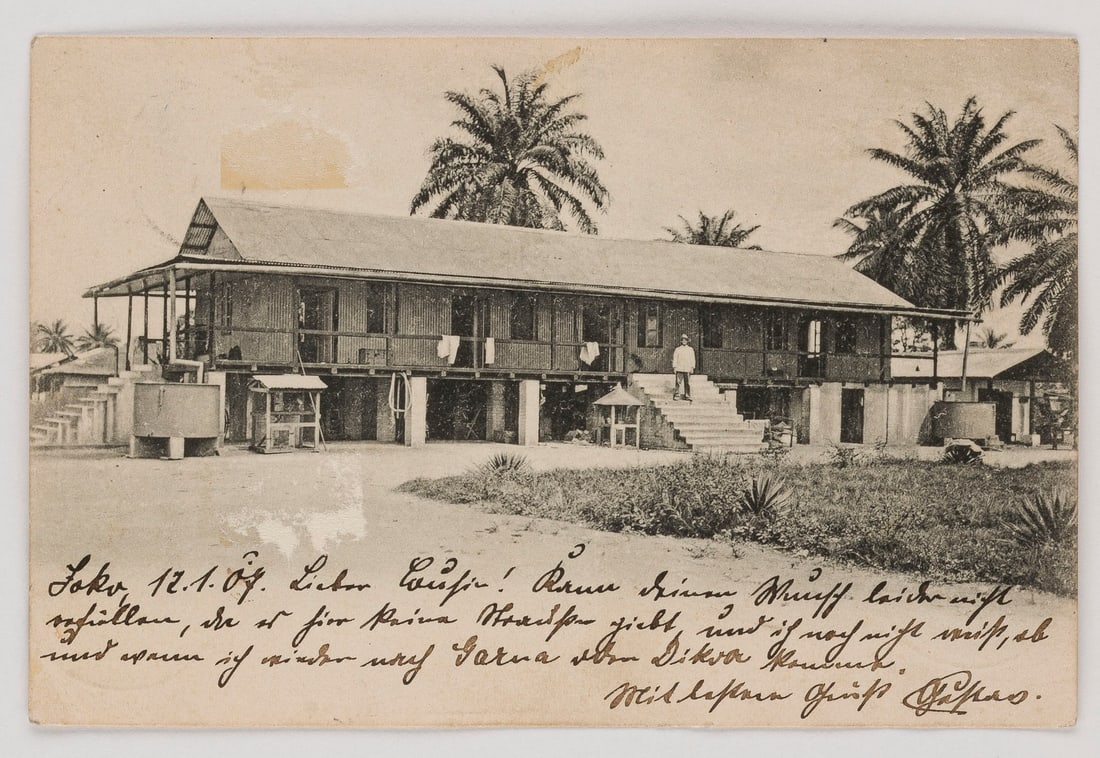 Joko, 12.1.07. Lieber Cousin! Kann deinen Wunsch leider nicht
erfüllen, da es hier keine Strauße giebt, und ich noch nicht weiß, ob
und wenn ich wieder nach Garua oder Dikoa komme.
Mit bestem Gruß Gustav.